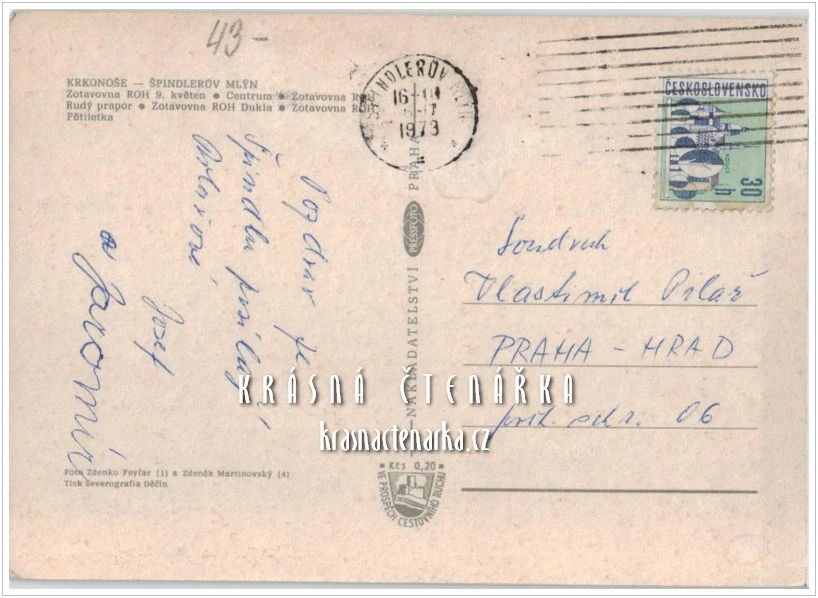 43-
KRKONOŠE — ŠPINDLERŮV MLÝN
Zotavovna ROH 9. květen ● Centrum ● Zotavovna ROH
Rudý prapor ● Zotavovna ROH Dukla ● Zotavovna ROH
Pětiletka
Pozdrav ze
Špindlu posílají
Josef
a Jaromír
Foto Zdenko Feyfar (1) a Zdeněk Martinovský (4)
Tisk Severografia Děčín
ŠPINDLERŮV MLÝN
1973
NAKLADATELSTVÍ PRESSFOTO PRAHA
Kčs 0,20
VE PROSPĚCH CESTOVNÍHO RUCHU
ČESKOSLOVENSKO
30
h
Soudruh
Vlastimil Pilař
PRAHA - HRAD
pošt. schr. 06
KRÁSNÁ ČTENÁŘKA
krasnactenarka.cz